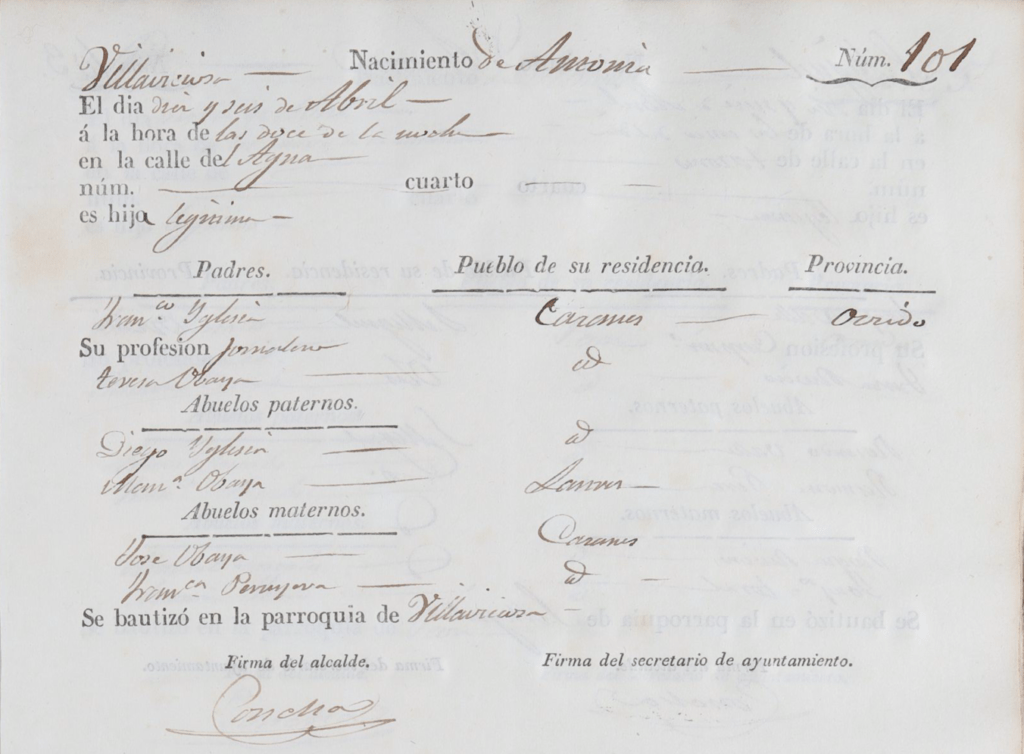 Villaviciosa — Nacimiento de Antonia — Núm. 101
El dia diez y seis de Abril —
á la hora de las doce de la noche —
en la calle del Agua —
núm. — cuarto —
es hija legitima —
Padres. Pueblo de su residencia. Provincia.
Fran.co Yglesia Cazanes — Oviedo
Su profesion Jornalero
teresa Obaya — id
Abuelos paternos.
Diego Yglesia — id
Man.a Obaya —
Abuelos maternos.
Jose Obaya — Cazanes
Fran.ca Peruyera — id —
Se bautizó en la parroquia de Villaviciosa —
Firma del alcalde. Firma del secretario de ayuntamiento.
Concha